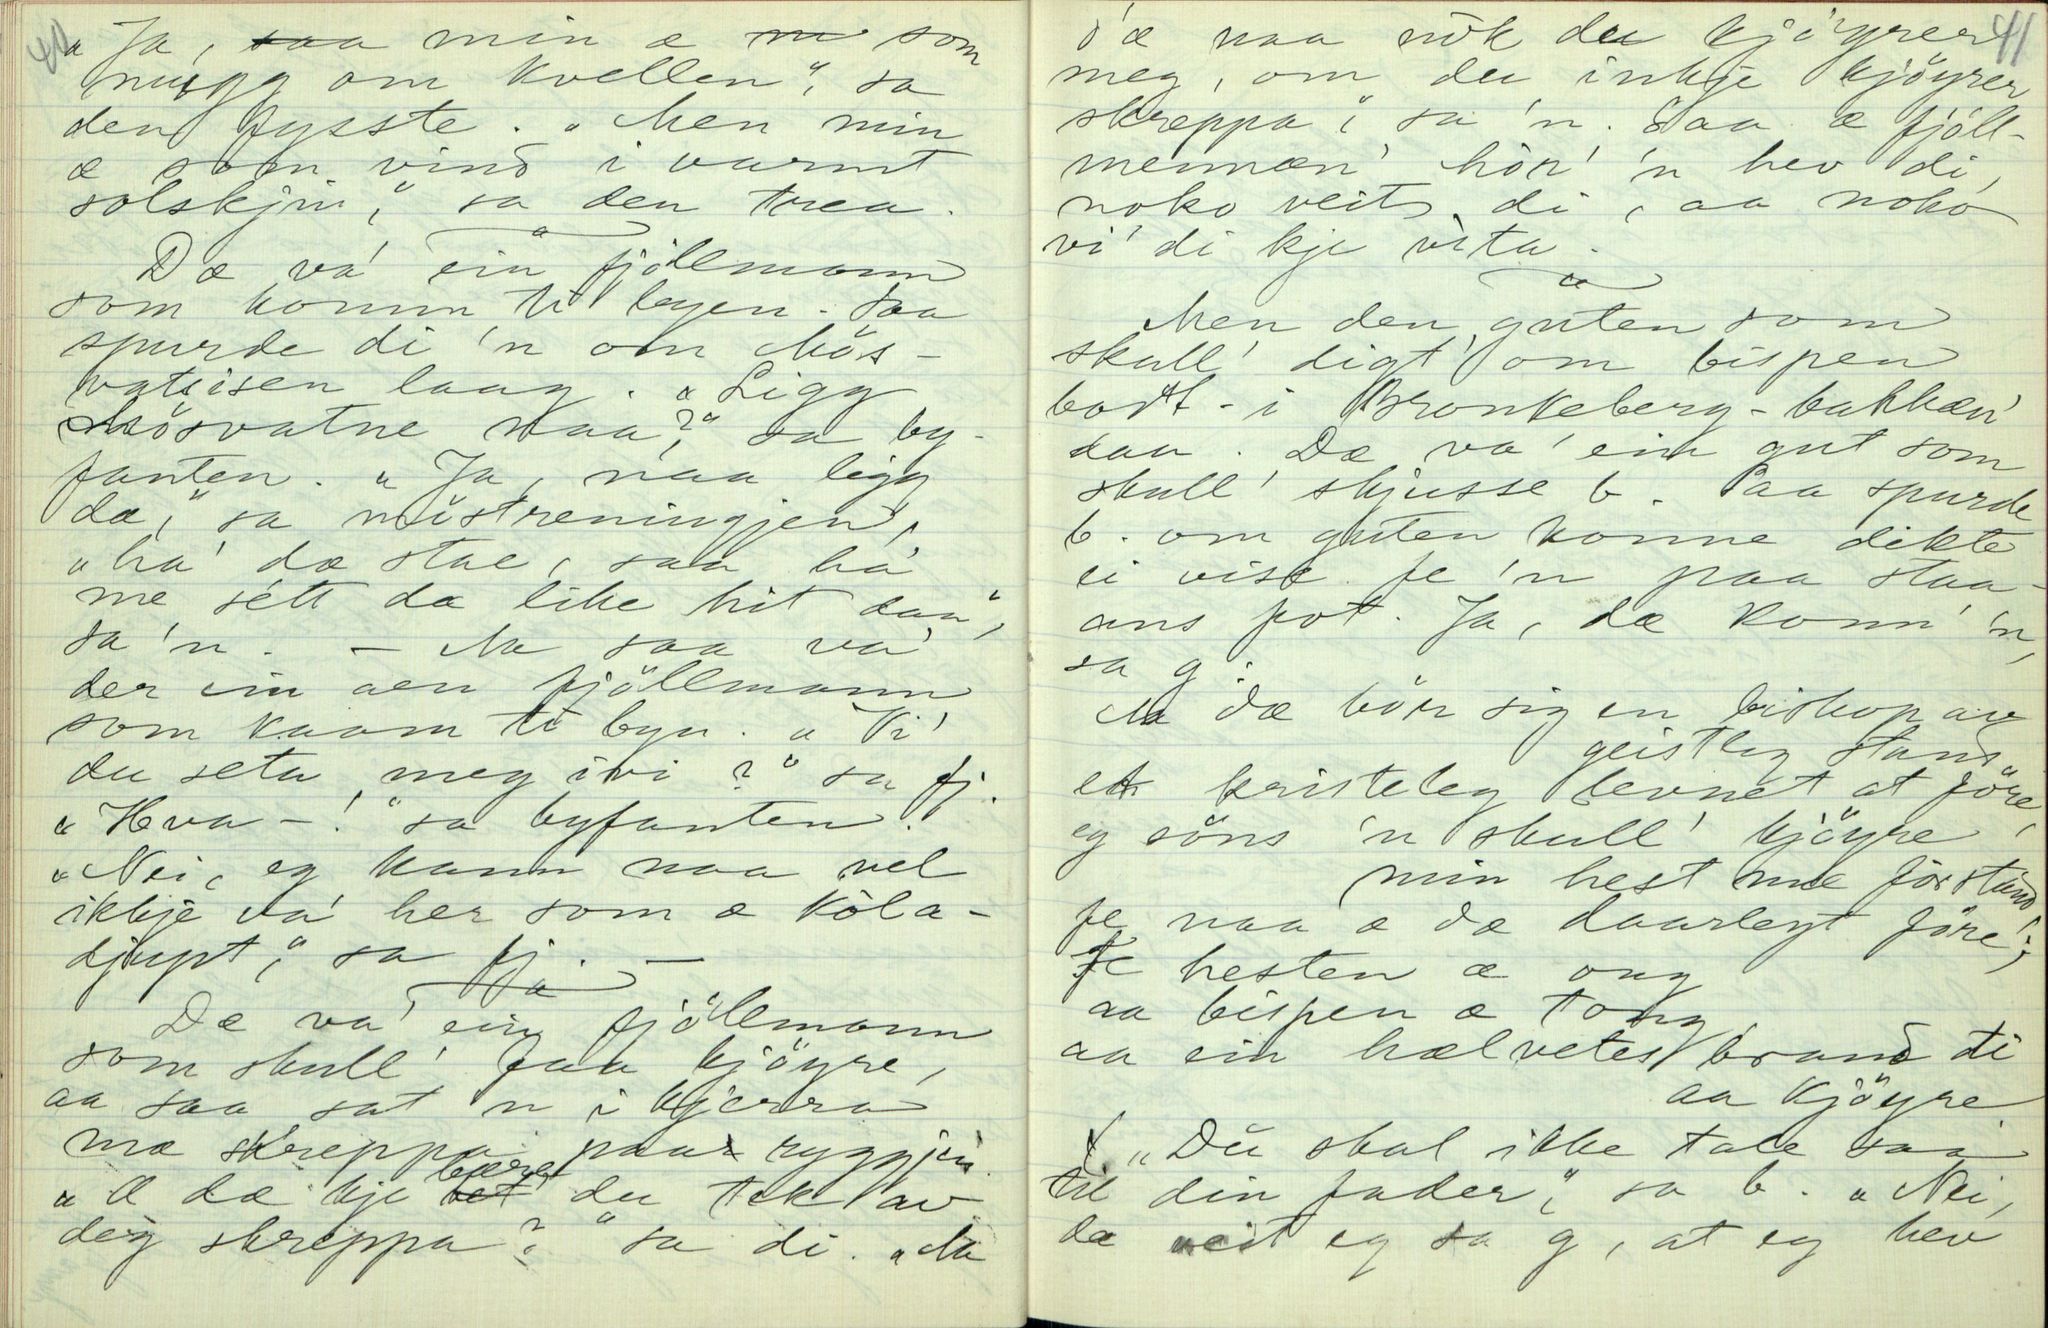 40
„Ja, saa min æ m som
mugg om kvellen“, sa
den fysste. „Men min
æ som vind i varmt
solskjin“, sa den trea.
Dæ va' ein fjöllmann
som komm ti byen. Saa
spurde di 'n om Mös-
vatsisen laag. „Ligg
Mösvatne naa?“ sa by-
fanten. „Ja, naa ligg
dæ“, sa mistreningjen,
„ha' dæ stae, saa ha'
me sétt da like hit daa“,
sa 'n. — Me saa va'
der ein aen fjöllmann
som kaam ti byn. „Vi'
du seta meg ivi?“ sa fj.
„Hva —!“ sa byfanten.
„Nei, eg kann naa vel
ikkje va' her som æ köla-
djupt“, sa fj. —
Dæ va' ein fjöllmann
som skull' faa kjöyre,
aa saa sat 'n i kjerra
mæ skreppa paa ryggjin.
„Æ dæ kje bet bære du tek av
deg skreppa?“ sa di. „Me
41
d'æ naa nòk du kjöyrer
meg, om du inkje kjöyrer
skreppa“, sa 'n. Saa æ fjöll-
mennæn' hör' 'n hev di,
noko veit di, aa noko
vi' di kje vita.
Men den guten som
skull' digt' om bispen
bort-i Bronkeberg-bakkæn'
daa. Dæ va' ein gut som
skull' skjusse b. Saa spurde
b. om guten konne dikte
ei vise fe 'n paa staa-
ans fot. Ja, dæ konn' 'n,
sa g.
Me dæ bör sig en biskop av
geistleg stand
ett kristeleg levnet at före,
eg söns 'n skull' kjöyre
min hest mæ forstand
fe naa æ dæ daarlegt före;
fe hesten æ ong
aa bispen æ tong
aa ein hælvetes brand ti
aa kjöyre
„Du skal ikke tale saa
til din fader“, sa b. „Nei,
da veit eg sa g, at eg hev